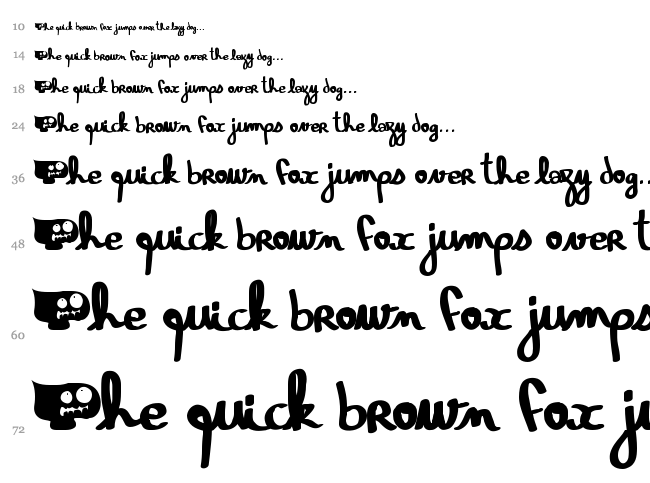 10 The quick brown fox jumps over the lazy dog...
14 The quick brown fox jumps over the lazy dog...
18 The quick brown fox jumps over the lazy dog...
24 The quick brown fox jumps over the lazy dog...
36 The quick brown fox jumps over the lazy dog..
48 The quick brown fox jumps over t
60 The quick brown fox jumps
72 The quick brown fox ju